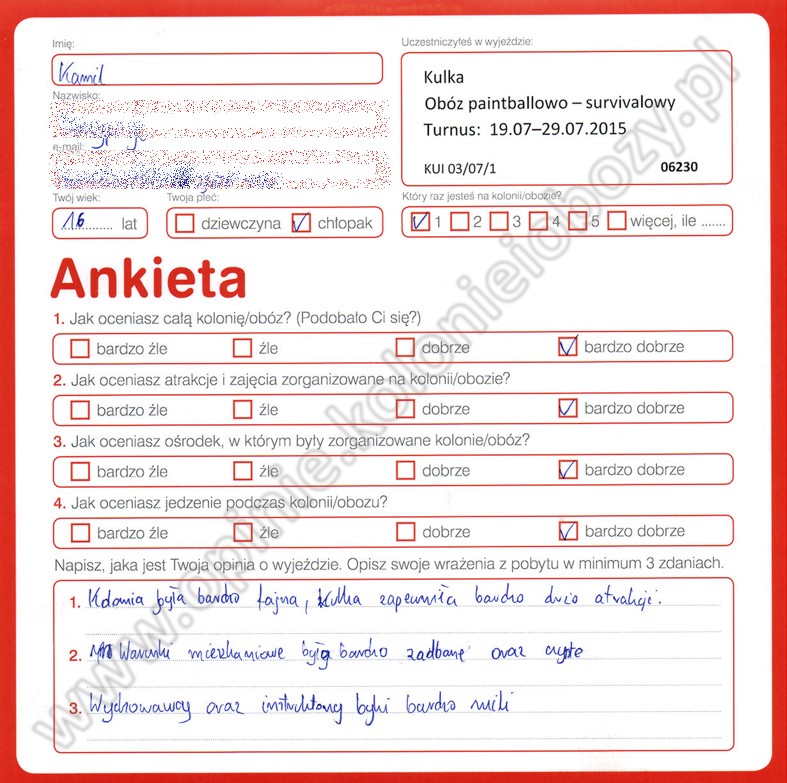 Imię:
Kamil
Nazwisko:
e-mail:
Twój wiek:
16 lat
Twoja płeć:
dziewczyna chłopak
Uczestniczyłeś w wyjeździe:
Kulka
Obóz paintballowo – survivalowy
Turnus: 19.07–29.07.2015
KUI 03/07/1 06230
Który raz jesteś na kolonii/obozie?
1 2 3 4 5 więcej, ile .......
Ankieta
1. Jak oceniasz całą kolonię/obóz? (Podobało Ci się?)
bardzo źle źle dobrze bardzo dobrze
2. Jak oceniasz atrakcje i zajęcia zorganizowane na kolonii/obozie?
bardzo źle źle dobrze bardzo dobrze
3. Jak oceniasz ośrodek, w którym były zorganizowane kolonie/obóz?
bardzo źle źle dobrze bardzo dobrze
4. Jak oceniasz jedzenie podczas kolonii/obozu?
bardzo źle źle dobrze bardzo dobrze
Napisz, jaka jest Twoja opinia o wyjeździe. Opisz swoje wrażenia z pobytu w minimum 3 zdaniach.
1. Kolonia była bardzo fajna, Kulka zapewniła bardzo dużo atrakcji.
2. Warunki mieszkaniowe były bardzo zadbane oraz czyste
3. Wychowawcy oraz instruktorzy byli bardzo mili
www.opinie.kolonieiobozy.pl